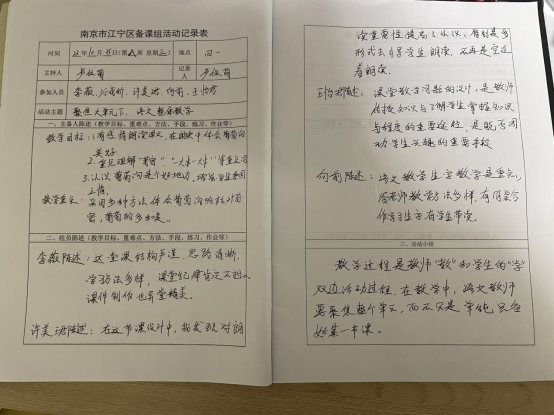 南京市江宁区备课组活动记录表
时间 年10月 日(第 周 星期 ) 地点 四一
主持人 芦筱萌 记录人 芦筱萌
参加人员 李薇、 、许美珺、何前、王怡君
活动主题 聚焦大单元下，语文整体教学
一、主备人陈述(教学目标、重难点、方法、手段、练习、作业等)
教学目标：1.有感情朗读课文，在朗读中体会葡萄沟
美好
2.重点理解“ ”“一大串一大串”等重点词
3.认识葡萄沟是个好地方，增强 热爱祖国
之情。
教学重点：采用多种方法，体会葡萄沟的枝叶茂
密，葡萄的多如美。
二、组员陈述(教学目标、重难点、方法、手段、练习、作业等)
李薇陈述：这堂课结构严谨，思路清晰，
学习方法多样，课堂纪律肯定不 ，
课件制作也非常精美。
许美珺陈述：在这节课设计中，我发现对朗
读重要性 有了认识，能利用多
形式去引导学生朗读，不再是空泛
者朗读。
王怡君陈述：课堂教学问题的设计，是教师
传授知识与了解学生掌握知识
与程度的重要途径，是能否调
动学生兴趣的重要手段
何前陈述：语文教学生字教学是重点，
各老师教学方法多样，有同桌合
作学习生字有学生带读。
三、活动小结
教学过程是教师“教”和学生的“学”
双边活动过程。在教学中，语文教师
要聚焦整个单元，而不只是单纯只备
好某一节课。